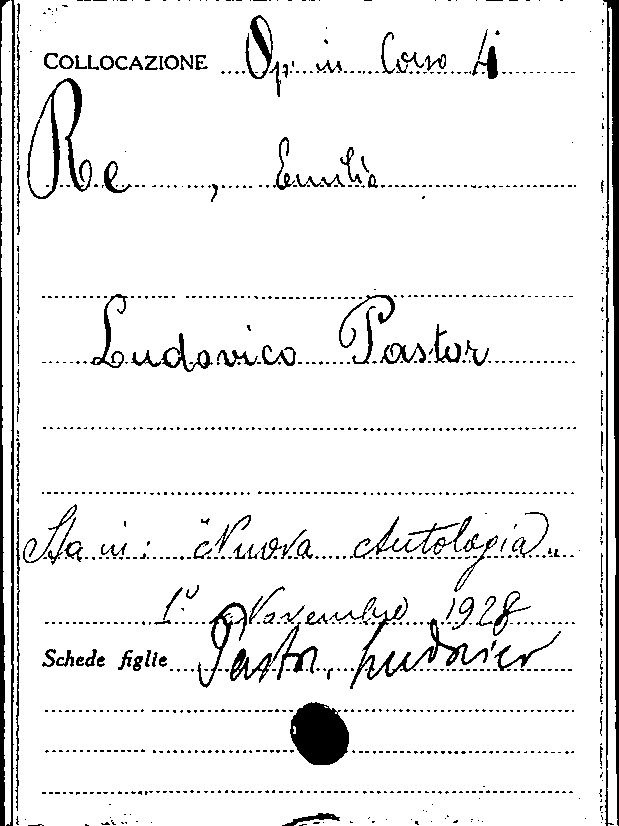 COLLOCAZIONE Op. in Corso 4
Re, Emilio
Ludovico Pastor
Sta in: "Nuova Antologia„
1° Novembre 1928
Schede figlie Pastor, Ludovico